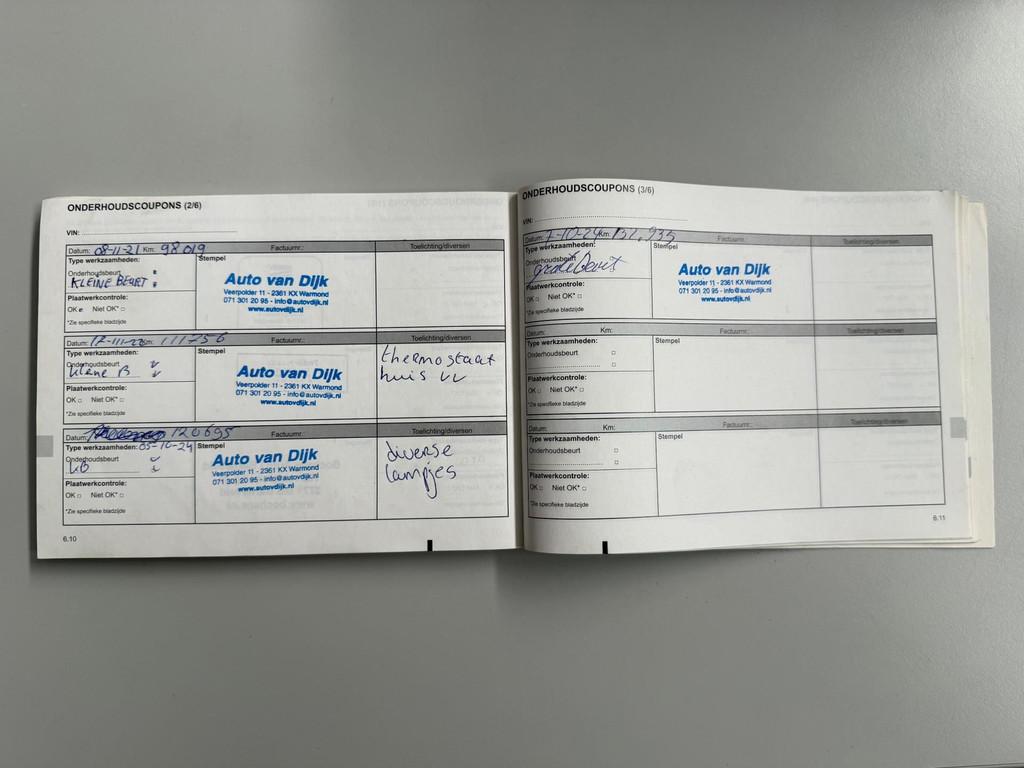 ONDERHOUDSCOUPONS (2/6)
VIN:
Datum: 08-11-21 Km: 98019 Factuurnr.: Toelichting/diversen
Type werkzaamheden:
Stempel
Onderhoudsbeurt
KLEINE BEURT
Plaatwerkcontrole:
OK Niet OK*
*Zie specifieke bladzijde
Auto van Dijk
Veerpolder 11 - 2361 KX Warmond
071 301 20 95 - info@autovdijk.nl
www.autovdijk.nl
Datum: Km: 111756 Factuurnr.: Toelichting/diversen
Type werkzaamheden:
Stempel
Onderhoudsbeurt
B
Plaatwerkcontrole:
OK Niet OK*
*Zie specifieke bladzijde
Auto van Dijk
Veerpolder 11 - 2361 KX Warmond
071 301 20 95 - info@autovdijk.nl
www.autovdijk.nl
thermostaat
huis
Datum: 120695 Factuurnr.: Toelichting/diversen
Type werkzaamheden: 05-10-24
Stempel
Onderhoudsbeurt
Plaatwerkcontrole:
OK Niet OK*
*Zie specifieke bladzijde
Auto van Dijk
Veerpolder 11 - 2361 KX Warmond
071 301 20 95 - info@autovdijk.nl
www.autovdijk.nl
diverse
lampjes
6.10
ONDERHOUDSCOUPONS (3/6)
VIN:
Datum: Km: 132.935 Factuurnr.: Toelichting/diversen
Type werkzaamheden:
Stempel
Onderhoudsbeurt
Plaatwerkcontrole:
OK Niet OK*
*Zie specifieke bladzijde
Auto van Dijk
Veerpolder 11 - 2361 KX Warmond
071 301 20 95 - info@autovdijk.nl
www.autovdijk.nl
Datum: Km: Factuurnr.: Toelichting/diversen
Type werkzaamheden:
Stempel
Onderhoudsbeurt
Plaatwerkcontrole:
OK Niet OK*
*Zie specifieke bladzijde
Datum: Km: Factuurnr.: Toelichting/diversen
Type werkzaamheden:
Stempel
Onderhoudsbeurt
Plaatwerkcontrole:
OK Niet OK*
*Zie specifieke bladzijde
6.11